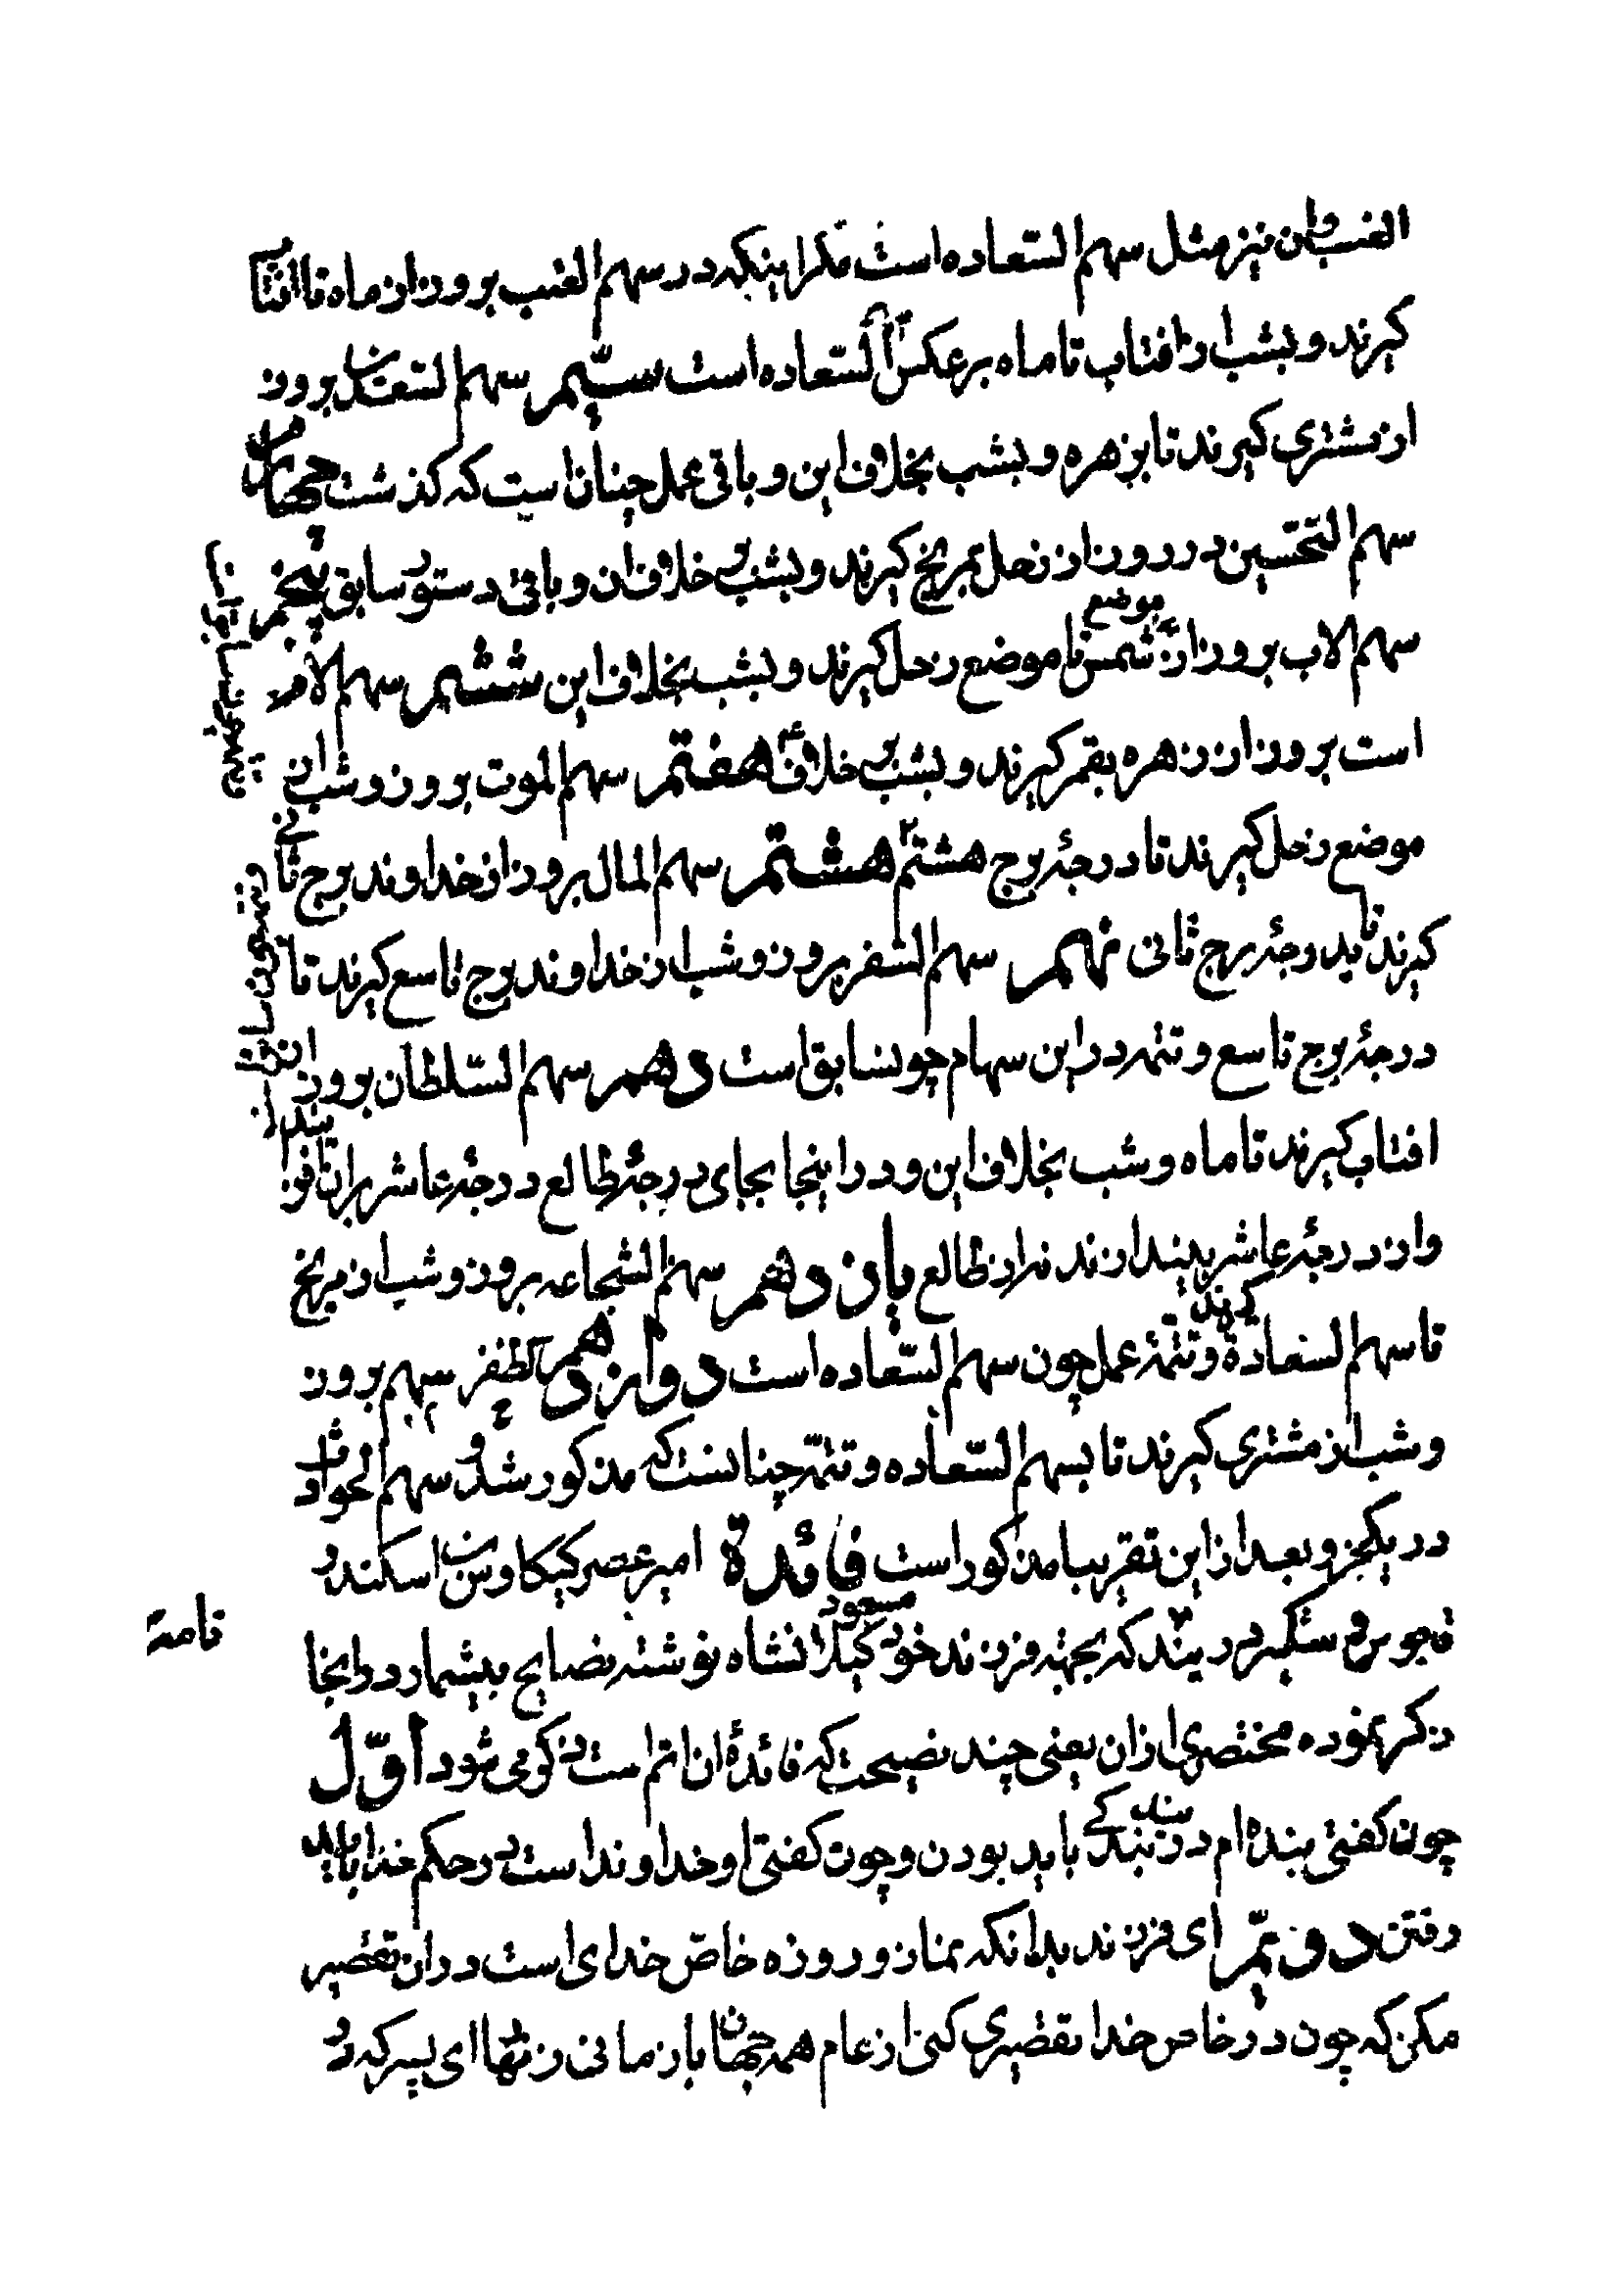 الغیب وان نیز مثل سهم السّعاده است مکر اینکه در سهم الغیب بروز از ماه تا افتاب
کیرند و بشب از افتاب تا ماه بر عکس السّعاده است سیّم سهم بروز
از مشتری کیرند تا بزهره و بشب بخلاف این و باقی عمل چنان است که کذشت چهارم
سهم النّحسین در روز از زحل بمریخ کیرند و بشب بر خلاف ان و باقی دستور سابق پنجم
سهم الاب بروز از موضع شمس تا موضع زحل کیرند و بشب بخلاف این ششم سهم الام
است بروز از زهره بقمر کیرند و بشب بر خلاف هفتم سهم الموت بروز و شب از
موضع زحل کیرند تا درجهٔ برج هشتم هشتم سهم المال بروز از خداوند برج ثانی
کیرند تا بدرجهٔ برج ثانی نهم سهم السّفر بروز و شب از خداوند برج تاسع کیرند تا
درجهٔ برج تاسع و تتمه در این سهام چون سابق است دهم سهم السّلطان بروز از
افتاب کیرند تا ماه و شب بخلاف این و در اینجا بجای درجهٔ طالع درجهٔ عاشر بران
واز درجهٔ عاشر بیندازند نه از طالع یازدهم سهم الشّجاعه بروز و شب از مریخ
تا سهم السعادة کیرند و تتمّهٔ عمل چون سهم السّعاده است دوازدهم سهم الظفر بروز
و شب از مشتری کیرند تا بسهم السّعاده و تتمّه چنانست که مذکور شد و سهم الحوادث
در یکجز و بعد از این تقریبا مذکور است فائدة امیر عنصر کیکاوس بن اسکندر
قابوس وشمکیر در پند که بجهته فرزند خود کیلانشاه نوشته نصایح بیشمار در انجا
ذکر نموده مختصری ازان یعنی چند نصیحت که فائدهٔ ان اتم است ذکر می شود اوّل
چون کفتی بنده ام در بند بندکی باید بودن و چون کفتی او خداوند است در حکم خدا باید
رفتن دویّم ای فرزند بدانکه نماز و روزه خاصّ خدای است در ان تقصیر
مکن که چون در خاص خدا تقصیری کنی از عام همه جهان باز مانی زنهار ای پسر که در
نامهٔ